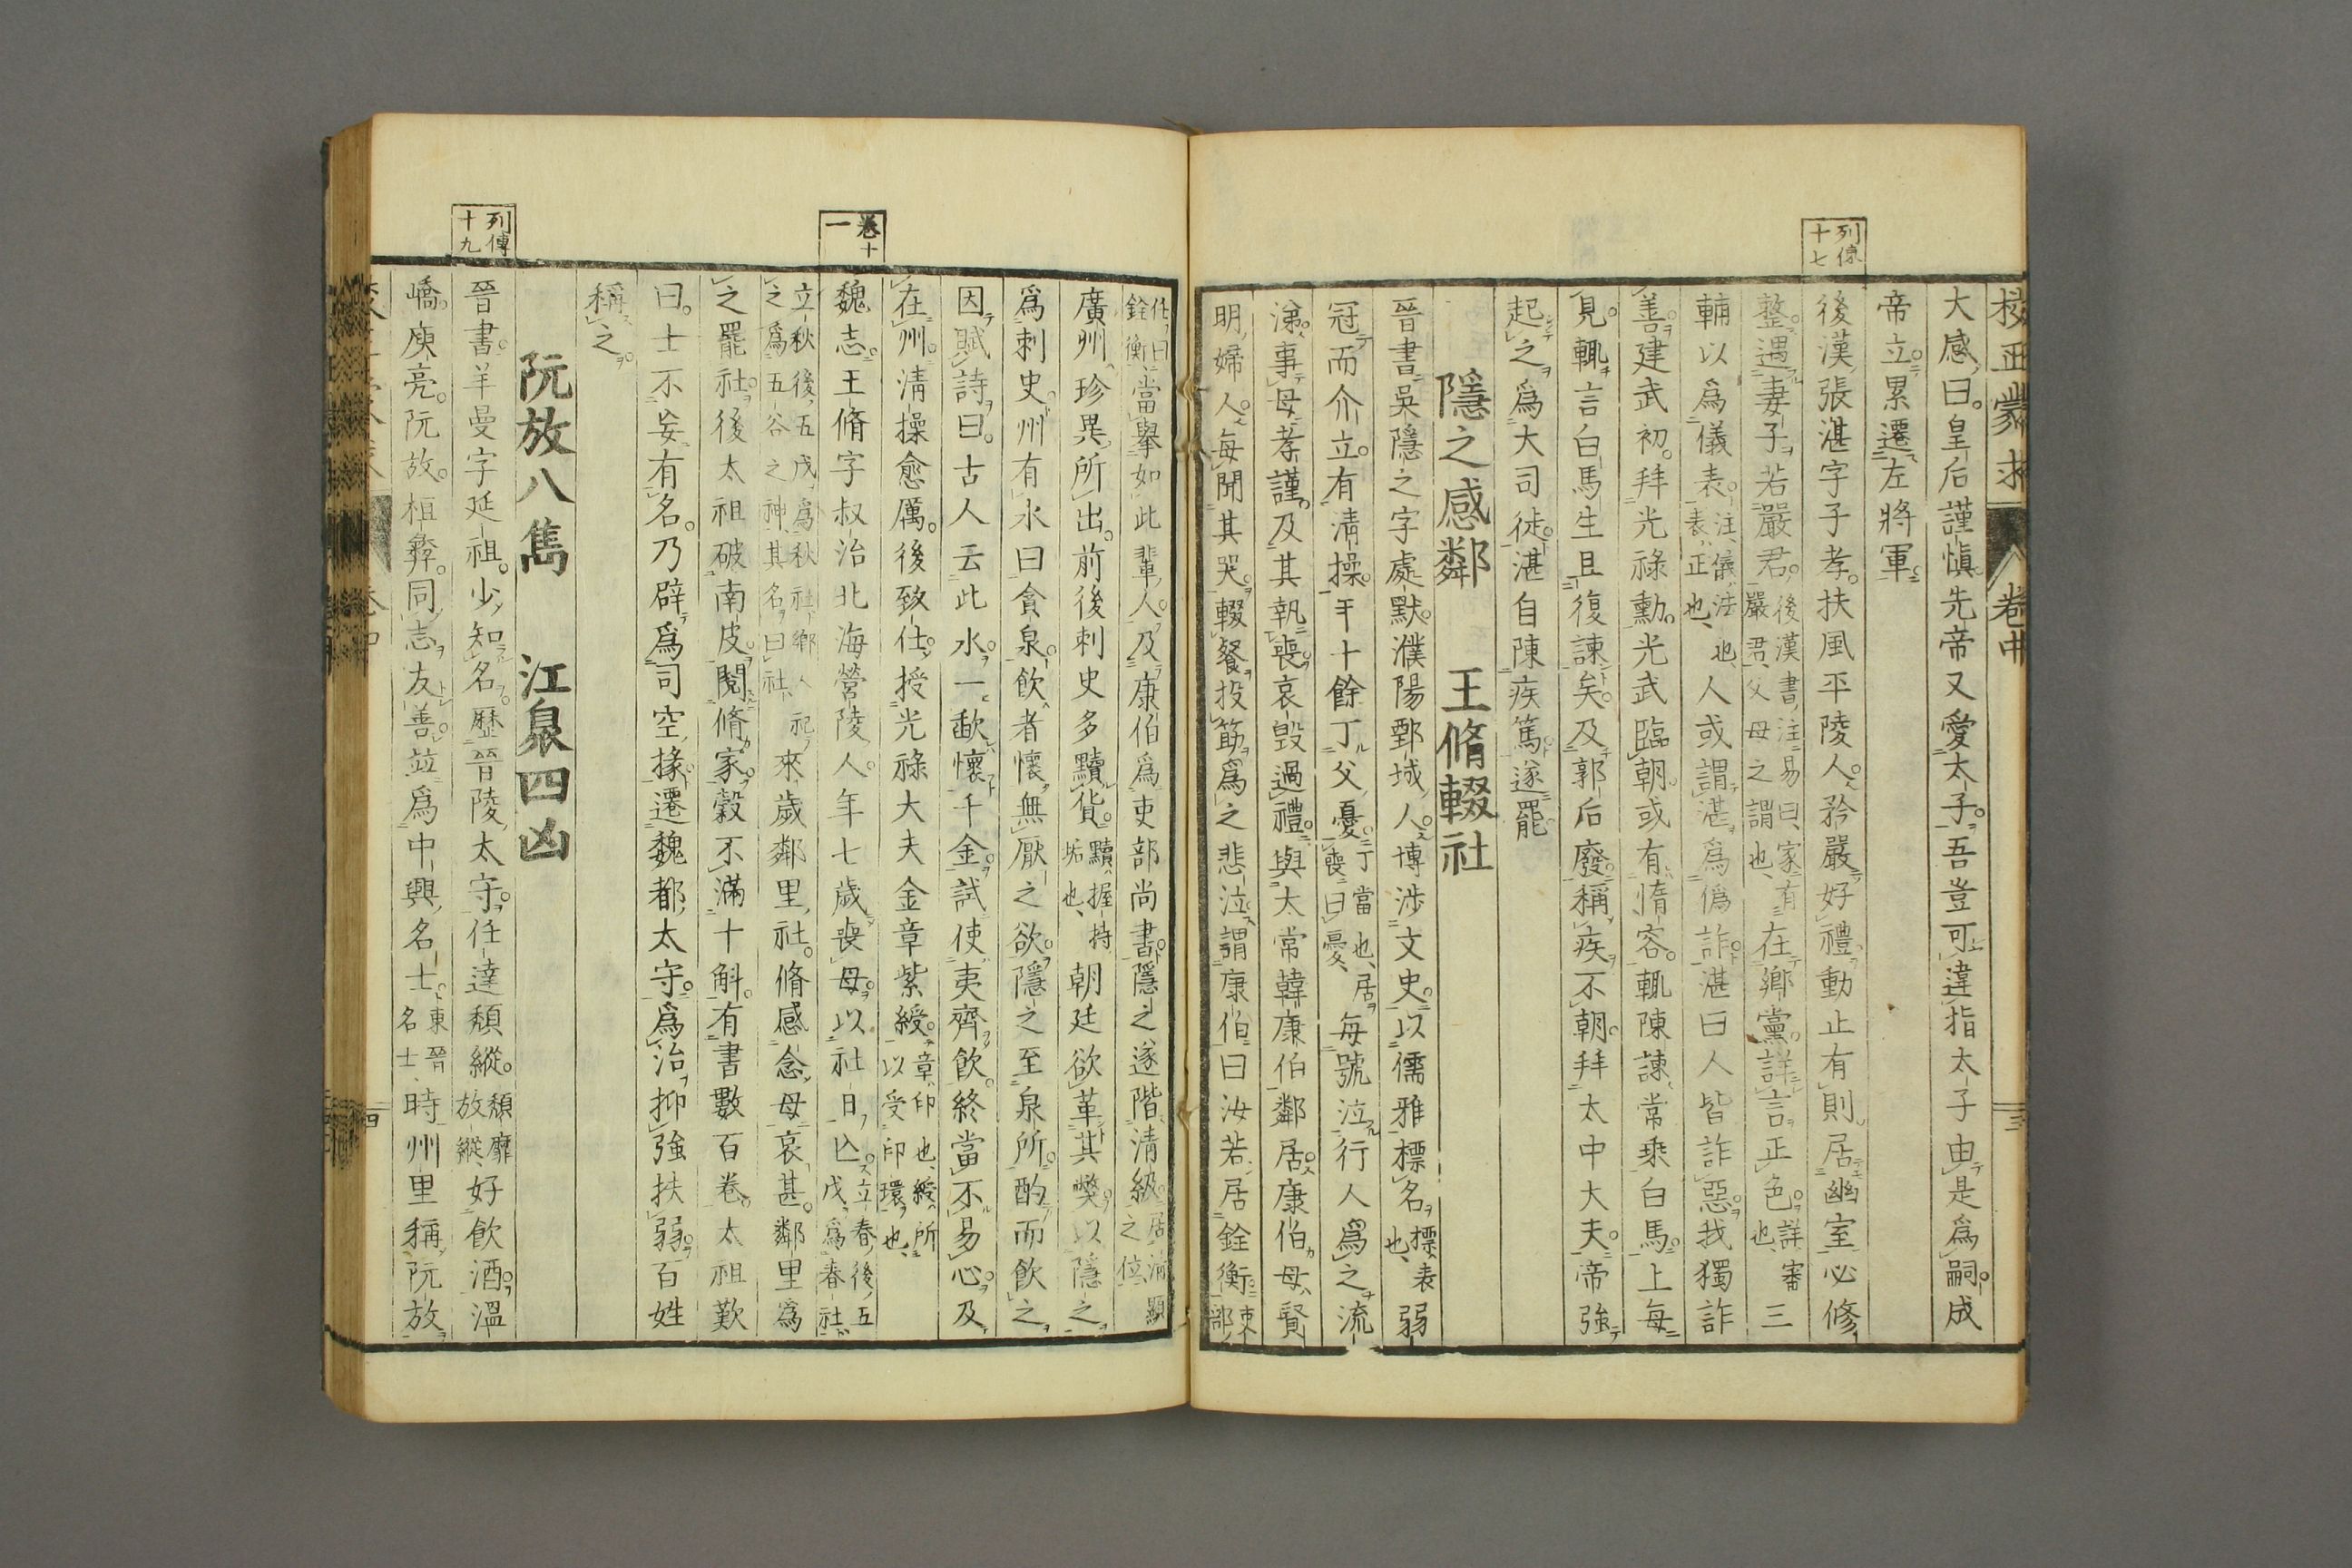 校正蒙求 卷中 三
大感曰皇后謹愼先帝又愛太子吾豈可違指太子由是爲嗣成
帝立累遷左將軍
列傳十七
後漢張湛字子孝扶風平陵人矜嚴好禮動止有則居幽室必修
整遇妻子若嚴君後漢書注易曰家有嚴君父母之謂也在鄉黨詳言正色詳審也三
輔以爲儀表注儀法也表正也人或謂湛爲僞詐湛曰人皆詐惡我獨詐
善建武初拜光祿勳光武臨朝或有惰容輒陳諫常乘白馬上每
見輒言白馬生且復諫矣及郭后廢稱疾不朝拜太中大夫帝強
起之爲大司徒湛自陳疾篤遂罷
隱之感鄰 王脩輟社
晉書吳隱之字處默濮陽鄄城人博涉文史以儒雅標名標表也弱
冠而介立有清操年十餘丁父憂丁當也居喪曰憂每號泣行人爲之流
涕事母孝謹及其執喪哀毀過禮與太常韓康伯鄰居康伯母賢
明婦人每聞其哭輟餐投筯爲之悲泣謂康伯曰汝若居銓衡吏部
任曰銓衡當舉如此輩人及康伯爲吏部尚書隱之遂階清級居清顯之位
廣州珍異所出前後刺史多黷貨黷握持垢也朝廷欲革其獘以隱之
爲刺史州有水曰貪泉飲者懷無厭之欲隱之至泉所酌而飲之
因賦詩曰古人云此水一歃懷千金試使夷齊飲終當不易心及
在州淸操愈厲後致仕授光祿大夫金章紫綬章印也綬所以受印環也
卷十一
魏志王脩字叔治北海營陵人年七歲喪母以社日亡立春後五戊爲春社
立秋後五戊爲秋社鄉人祀之爲五谷之神其名曰社來歲鄰里社脩感念母哀甚鄰里爲
之罷社後太祖破南皮閱脩家穀不滿十斛有書數百卷太祖歎
曰士不妄有名乃辟爲司空掾遷魏郡太守爲治抑強扶弱百姓
稱之
阮放八雋 江泉四凶
列傳十九
晉書羊曼字延祖少知名歷晉陵太守任達頹縱頹靡放縱好飲酒溫
嶠庾亮阮放桓彝同志友善竝爲中興名士東晉名士時州里稱阮放
四